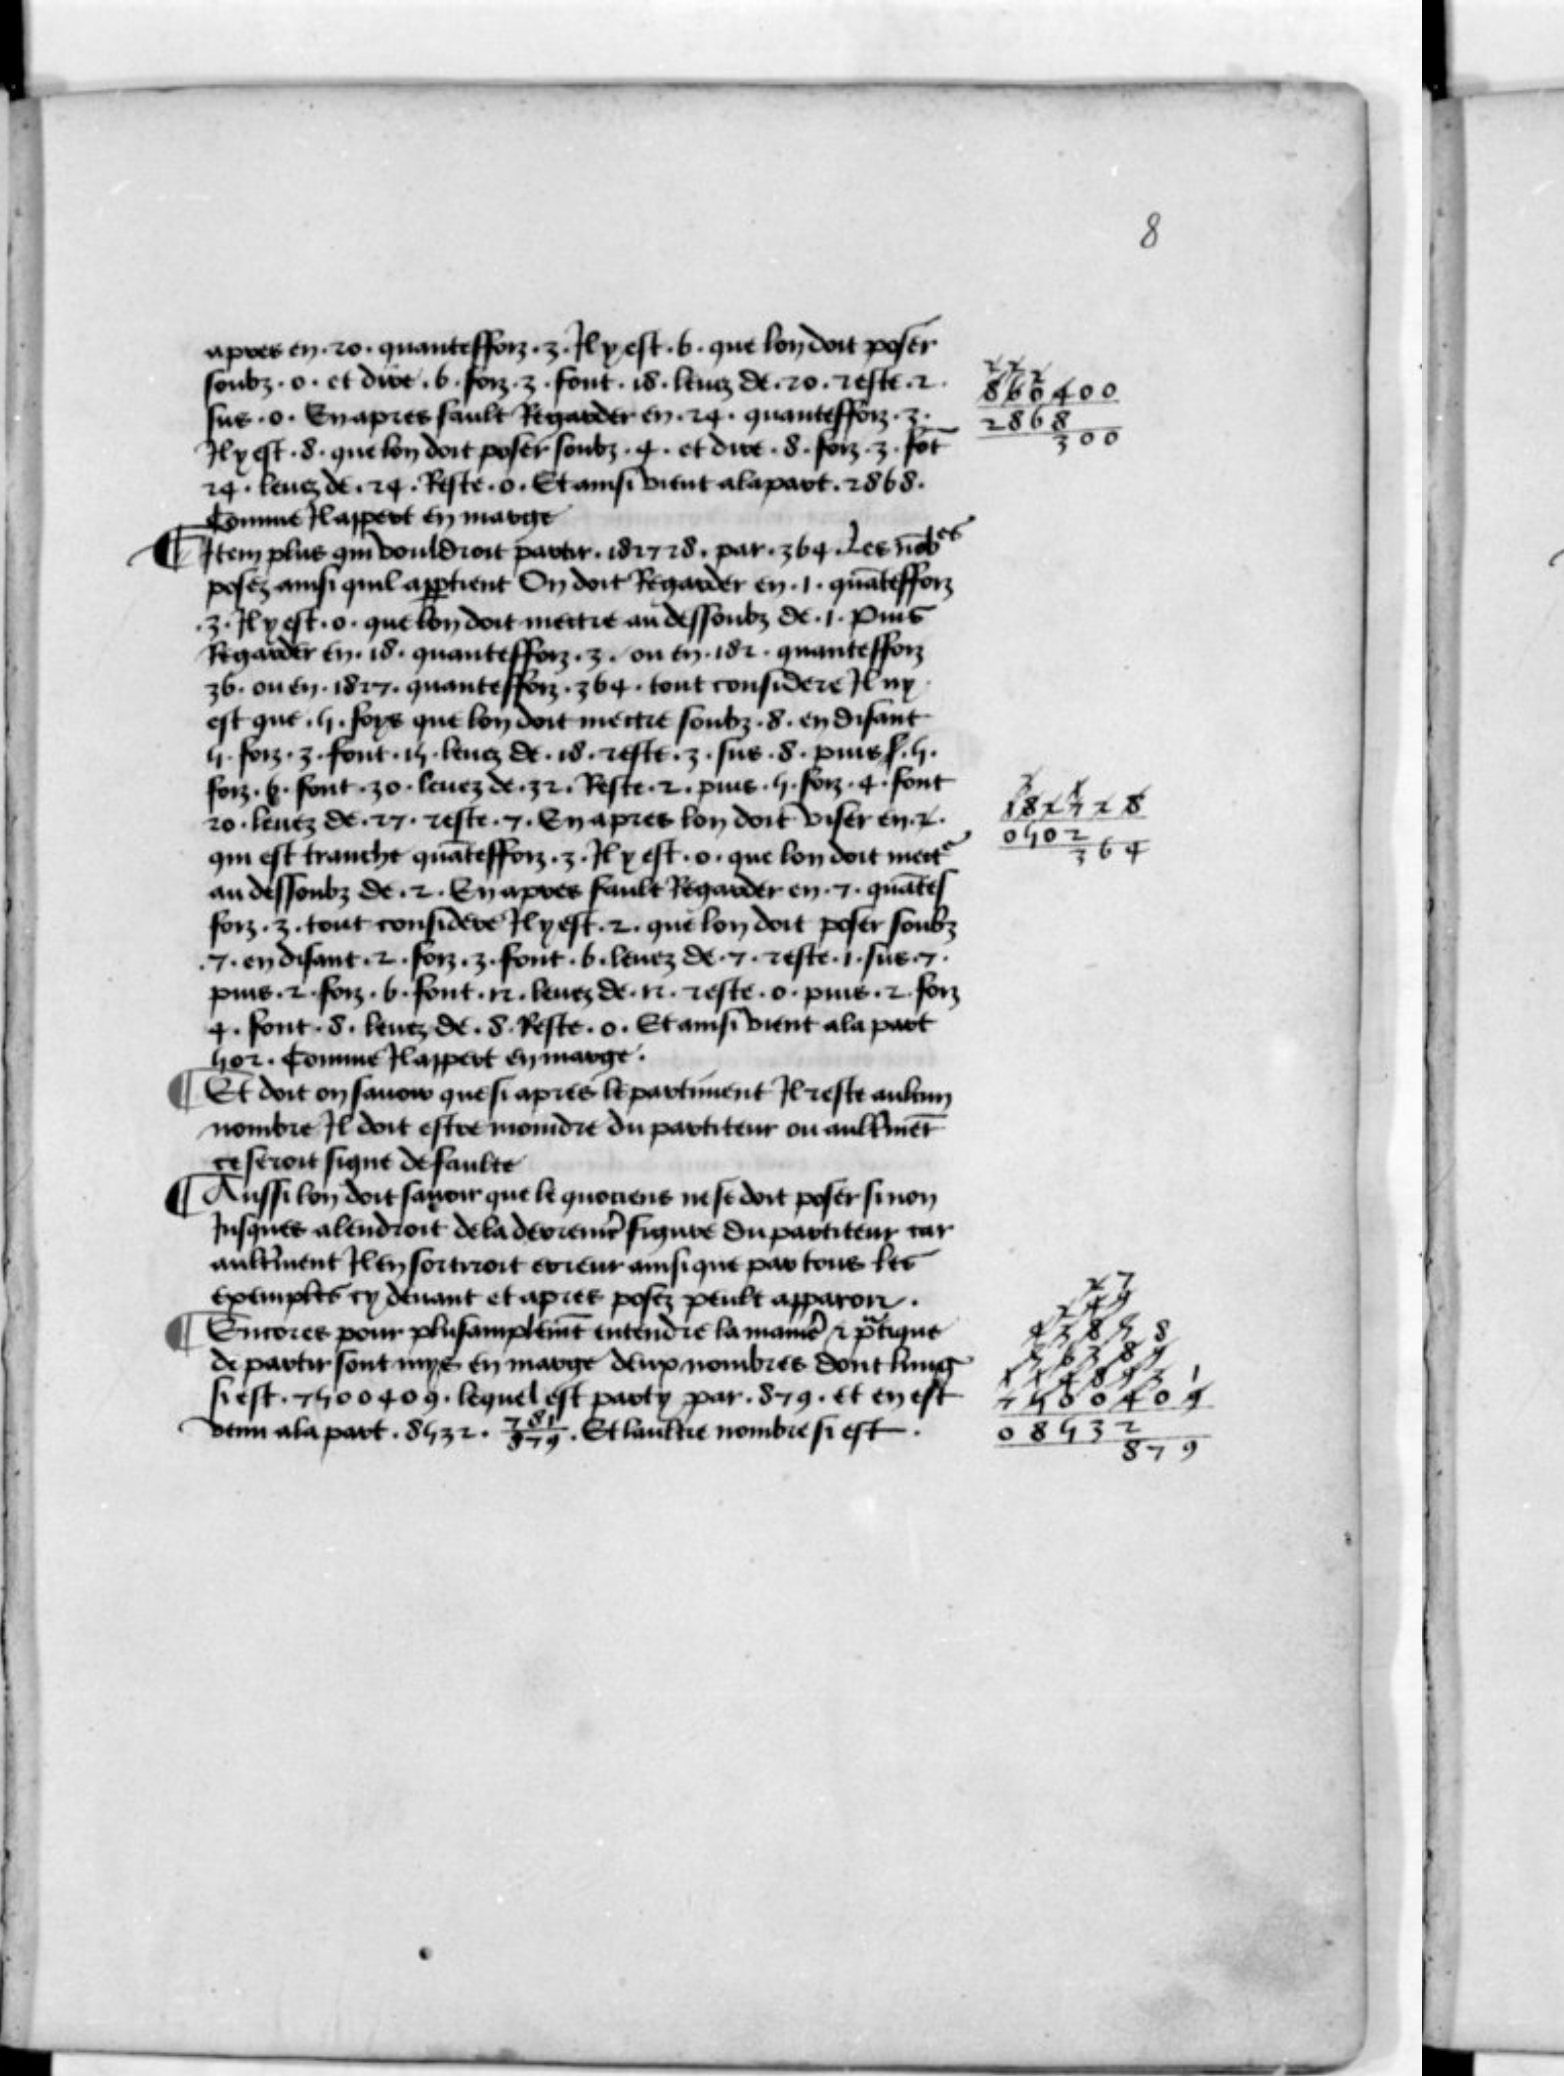 8
apres en .20. quantesffoiz .3. Il y est .6. que lon doit poser
soubz .0. et dire .6. foiz .3. font .18. leuez de .20. reste .2.
sus .0. En apres fault Regarder en .24. quantesffoiz .3.
Il y est .8. que lon doit poser soubz .4. et dire .8. foiz .3. fōt
24. leuez de .24. Reste .0. Et ainsi vient ala part .2868.
Comme Il appert en marge
860400
2868
300
¶ Item plus qui vouldroit partir .182728. par .364. Les nōbres
posez ainsi quil appartient On doit Regarder en .1. quātesffoiz
.3. Il y est .0. que lon doit mectre au dessoubz de .1. Puis
Regarder en .18. quantesffoiz .3. ou en .182. quantesffoiz
36. ou en .1827. quantesffoiz .364. tout considere Il ny
est que .5. foys que lon doit mectre soubz .8. en disant
5. foiz .3. font .15. leuez de .18. reste .3. sus .8. puis .5.
foiz .6. font .30. leuez de .32. Reste .2. puis .5. foiz .4. font
20. leuez de .27. reste .7. En apres lon doit viser en .2.
qui est tranche quātesffoiz .3. Il y est .0. que lon doit mectre
au dessoubz de .2. En apres fault Regarder en .7. quātes
foiz .3. tout considere Il y est .2. que lon doit poser soubz
.7. en disant .2. foiz .3. font .6. leuez de .7. reste .1. sus .7.
puis .2. foiz .6. font .12. leuez de .12. reste .0. puis .2. foiz
4. font .8. leuez de .8. Reste .0. Et ainsi vient ala part
502. Comme Il appert en marge.
182728
0502
364
¶ Et doit on sauoir que si apres le partiment Il reste aulcun
nombre Il doit estre moindre du partiteur ou aultrmēt
ce seroit signe de faulte
¶ Aussi lon doit sauoir que le quociens ne se doit poser sinon
Jusques alendroit dela derreniere figure du partiteur car
aultrment Il en sortiroit erreur ainsi que par tous les
exemples cy deuant et apres posez peult apparoir.
¶ Encores pour plusamplemēt entendre la maniere & pratique
de partir sont mys en marge deux nombres dont lung
si est .7500409. lequel est party par .879. Et en est
venu ala part .8532. 781/879. Et laultre nombre si est.
7500409
08532
879